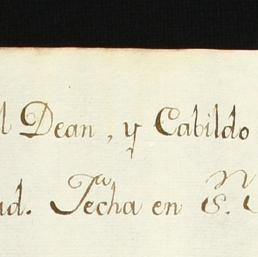 l Dean, y Cabildo
ad. Fecha en S.